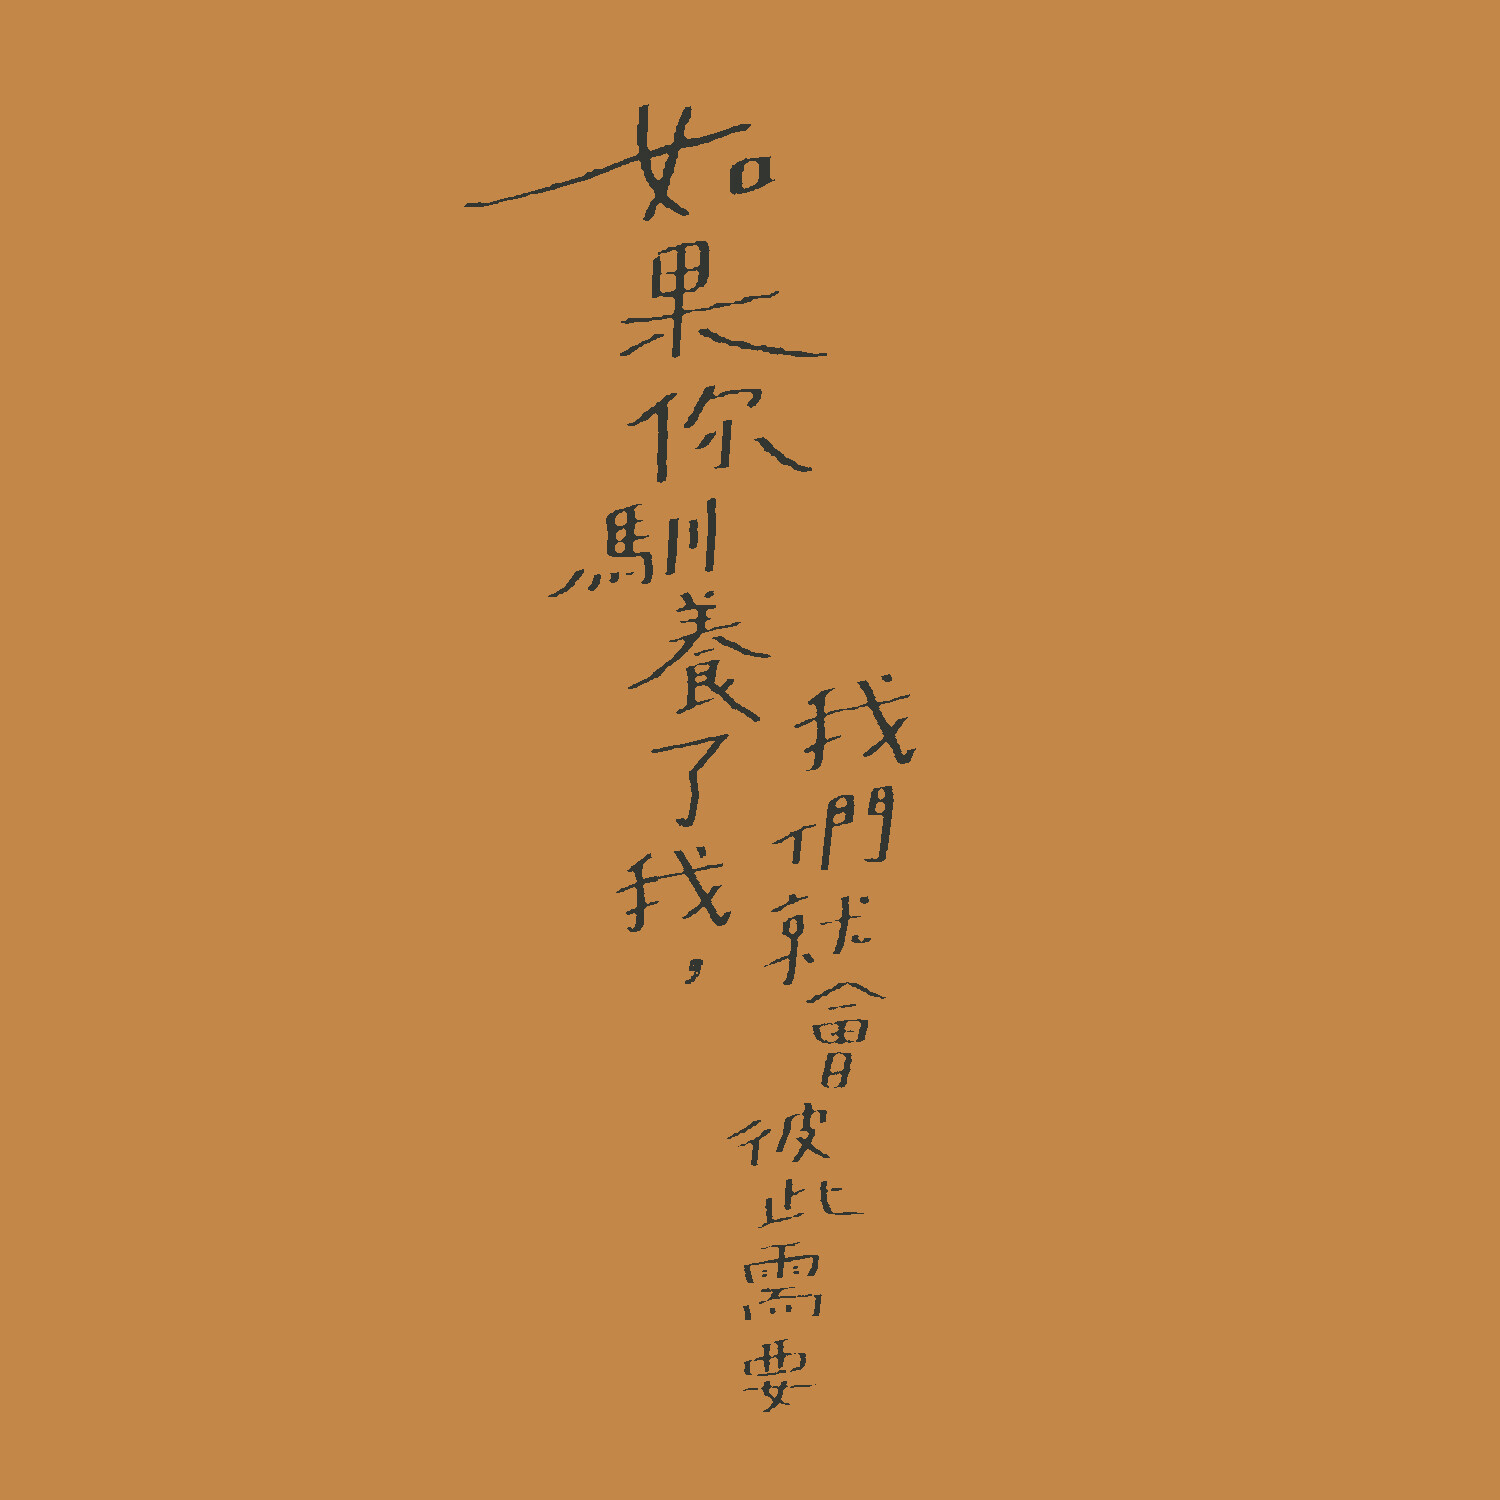 如果你馴養了我，
我們就會彼此需要